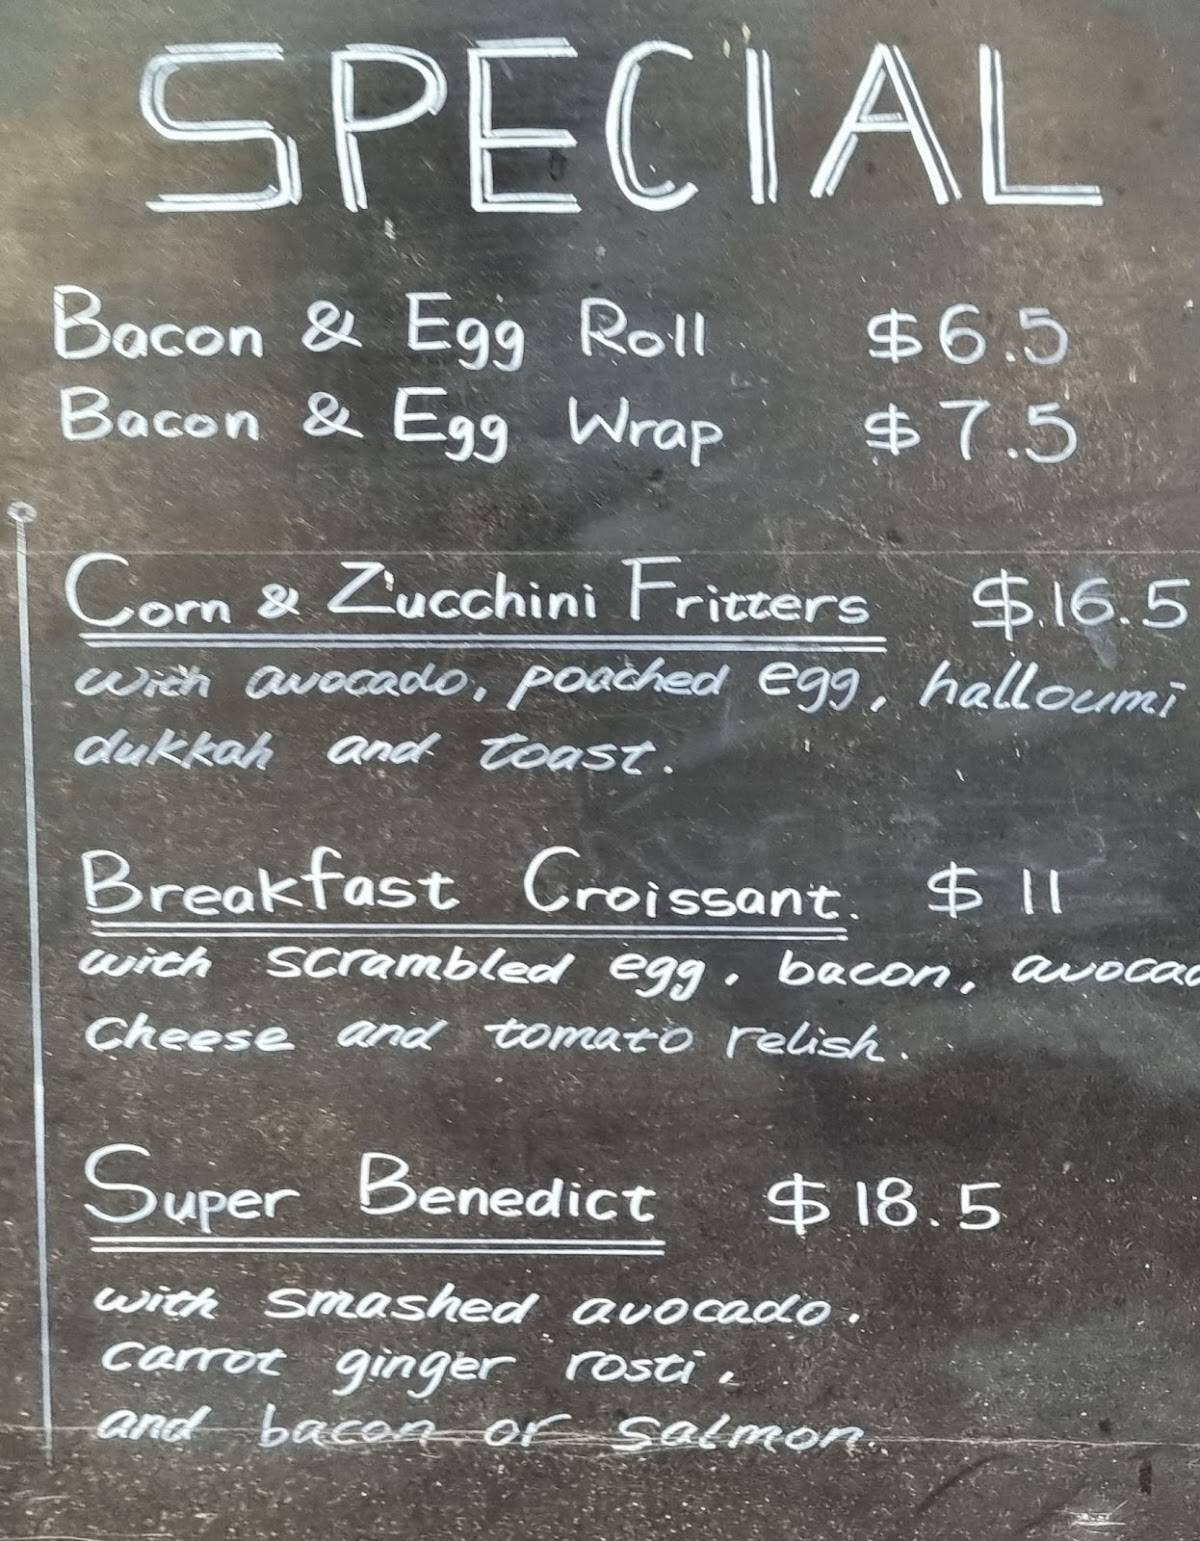 SPECIAL
Bacon & Egg Roll $6.5
Bacon & Egg Wrap $7.5
Corn & Zucchini Fritters $16.5
with avocado, poached egg, halloumi
dukkah and toast.
Breakfast Croissant. $11
with scrambled egg, bacon, avocad
Cheese and tomato relish.
Super Benedict $18.5
with smashed avocado.
carrot ginger rosti,
and bacon or salmon.